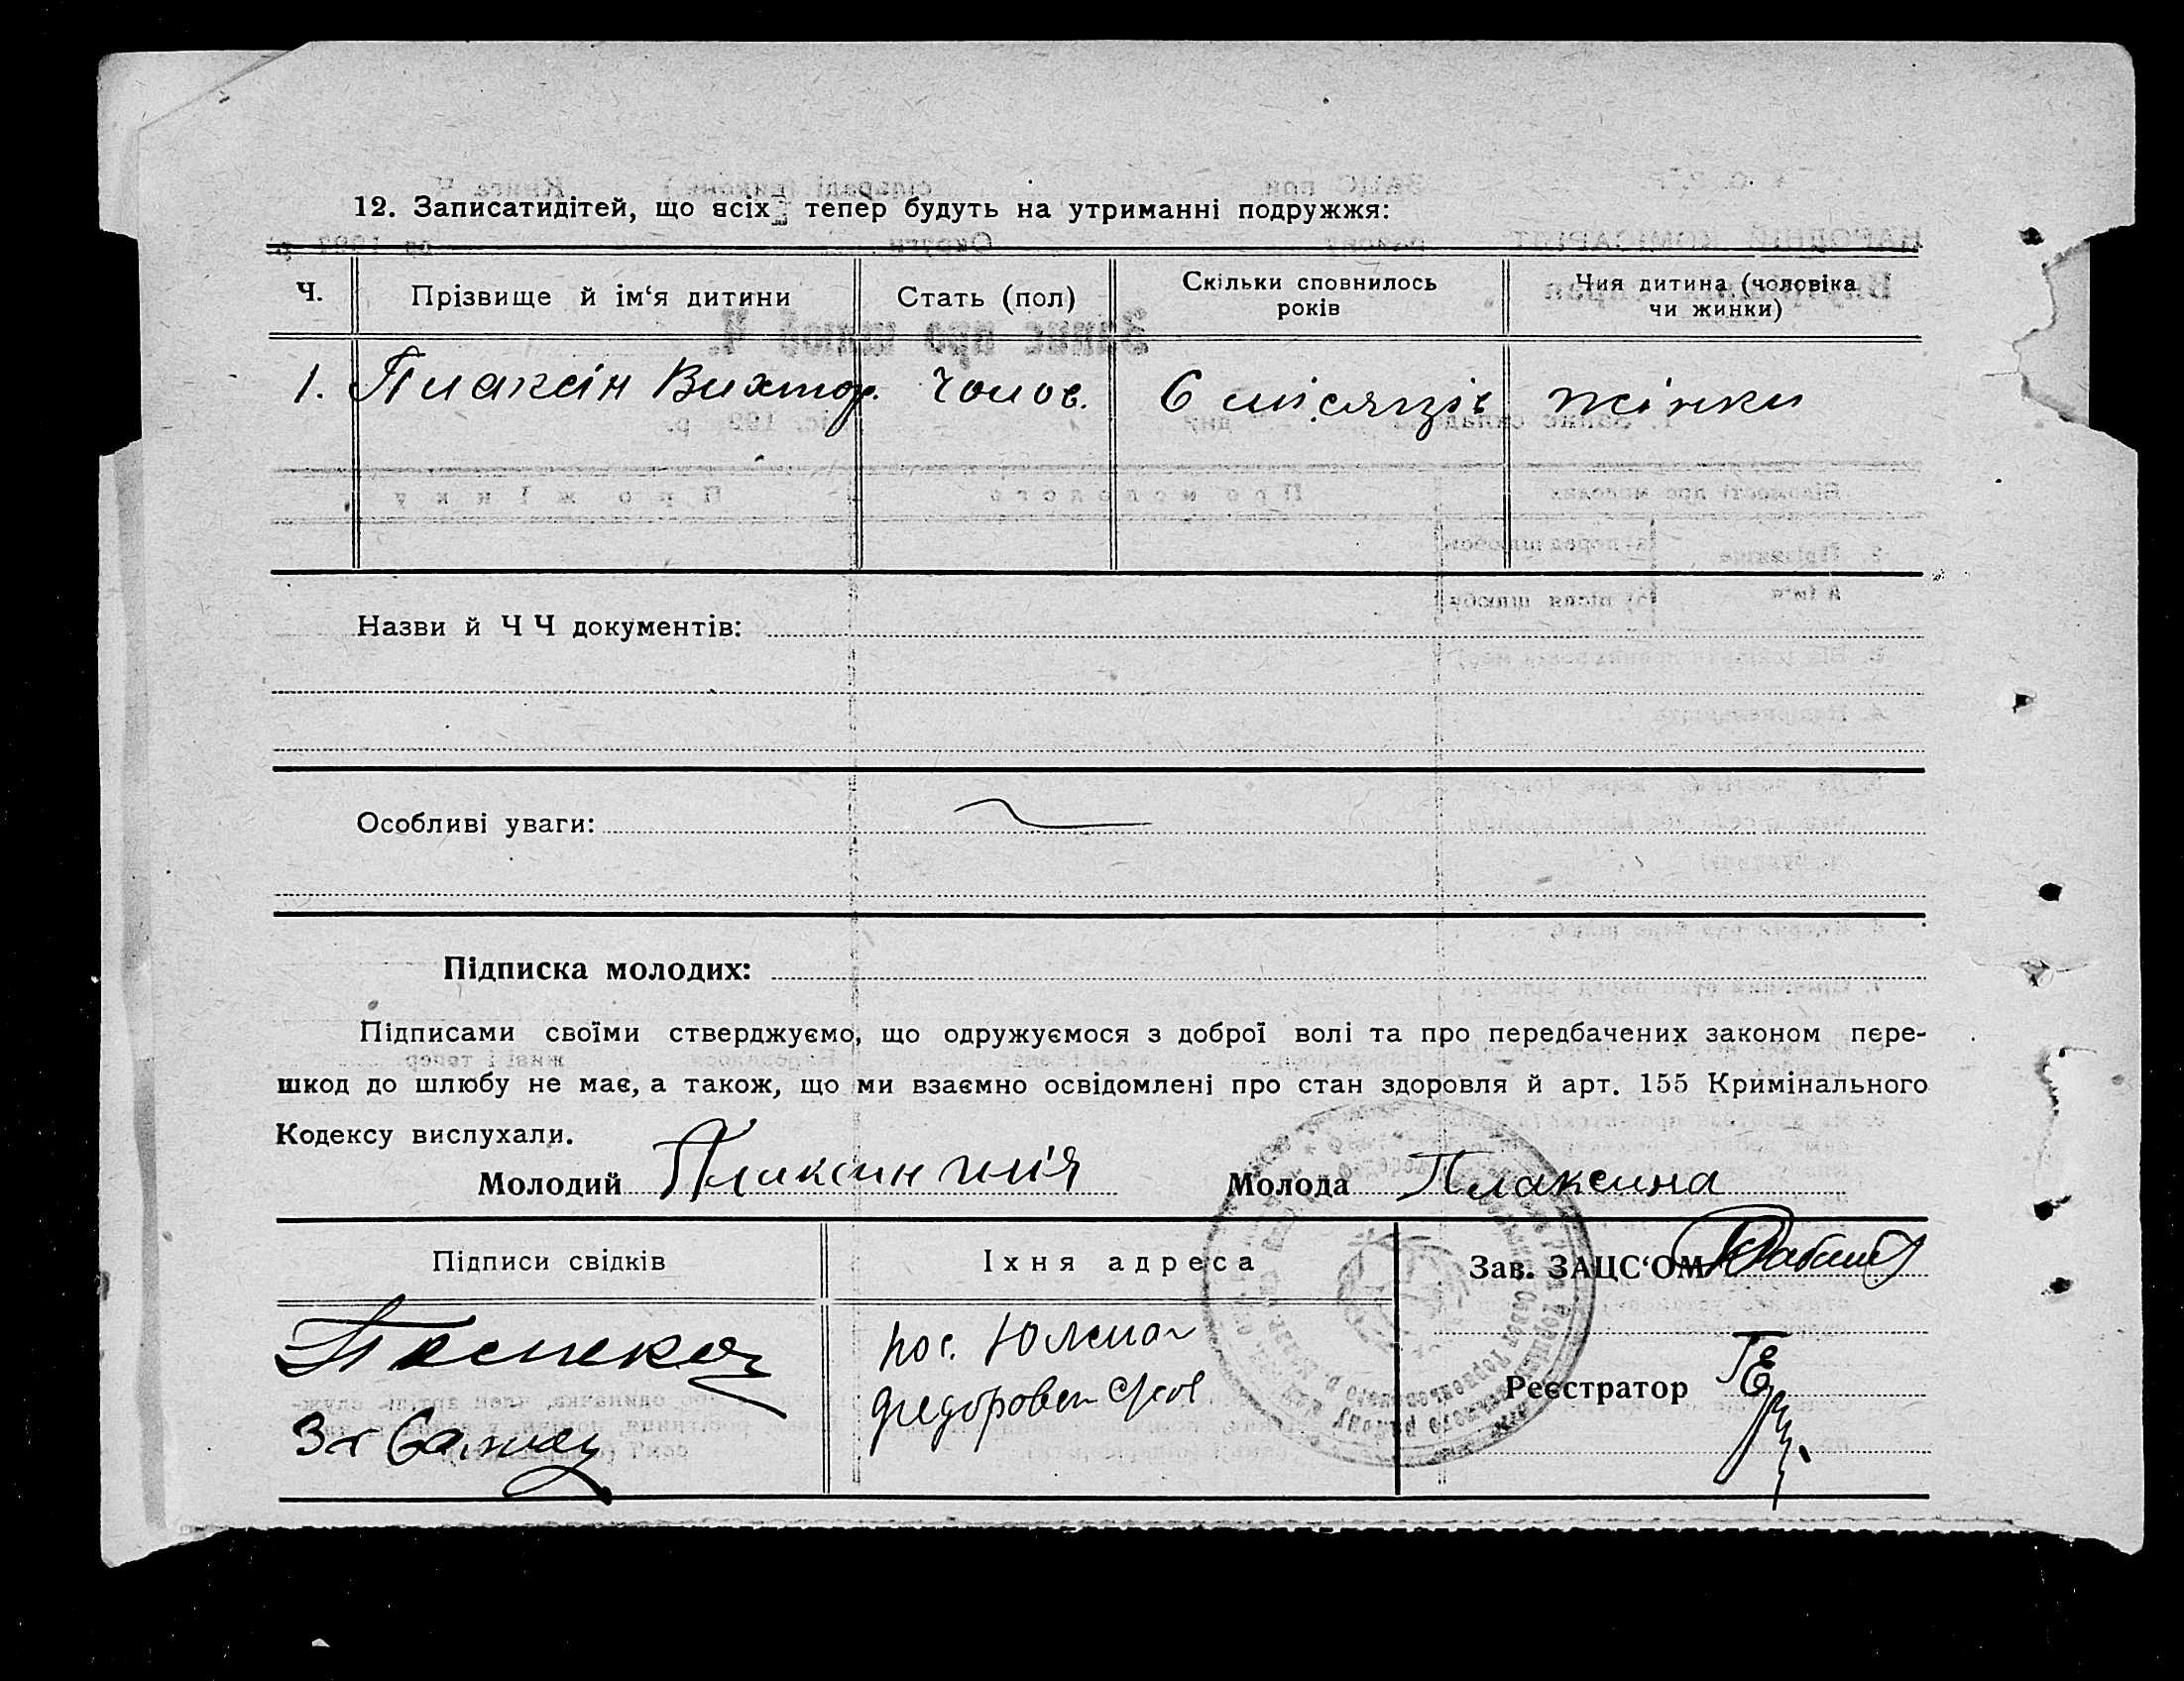 12. Записатидітей, що всіх тепер будуть на утриманні подружжя:
Ч. Прізвище й ім‘я дитини Стать (пол) Скільки сповнилось років Чия дитина (чоловіка чи жинки)
1. Плаксін Вихтор. Чолов. 6 місяців жінки
Назви й Ч Ч документів:
Особливі уваги:
Підписка молодих:
Підписами своїми стверджуємо, що одружуємося з доброї волі та про передбачених законом пере-
шкод до шлюбу не має, а також, що ми взаємно освідомлені про стан здоровля й арт. 155 Кримінального
Кодексу вислухали.
Молодий Плаксин Молода Плаксина
Підписи свідків Їхня адреса Зав. ЗАЦС‘ОМ
пос.
Реєстратор